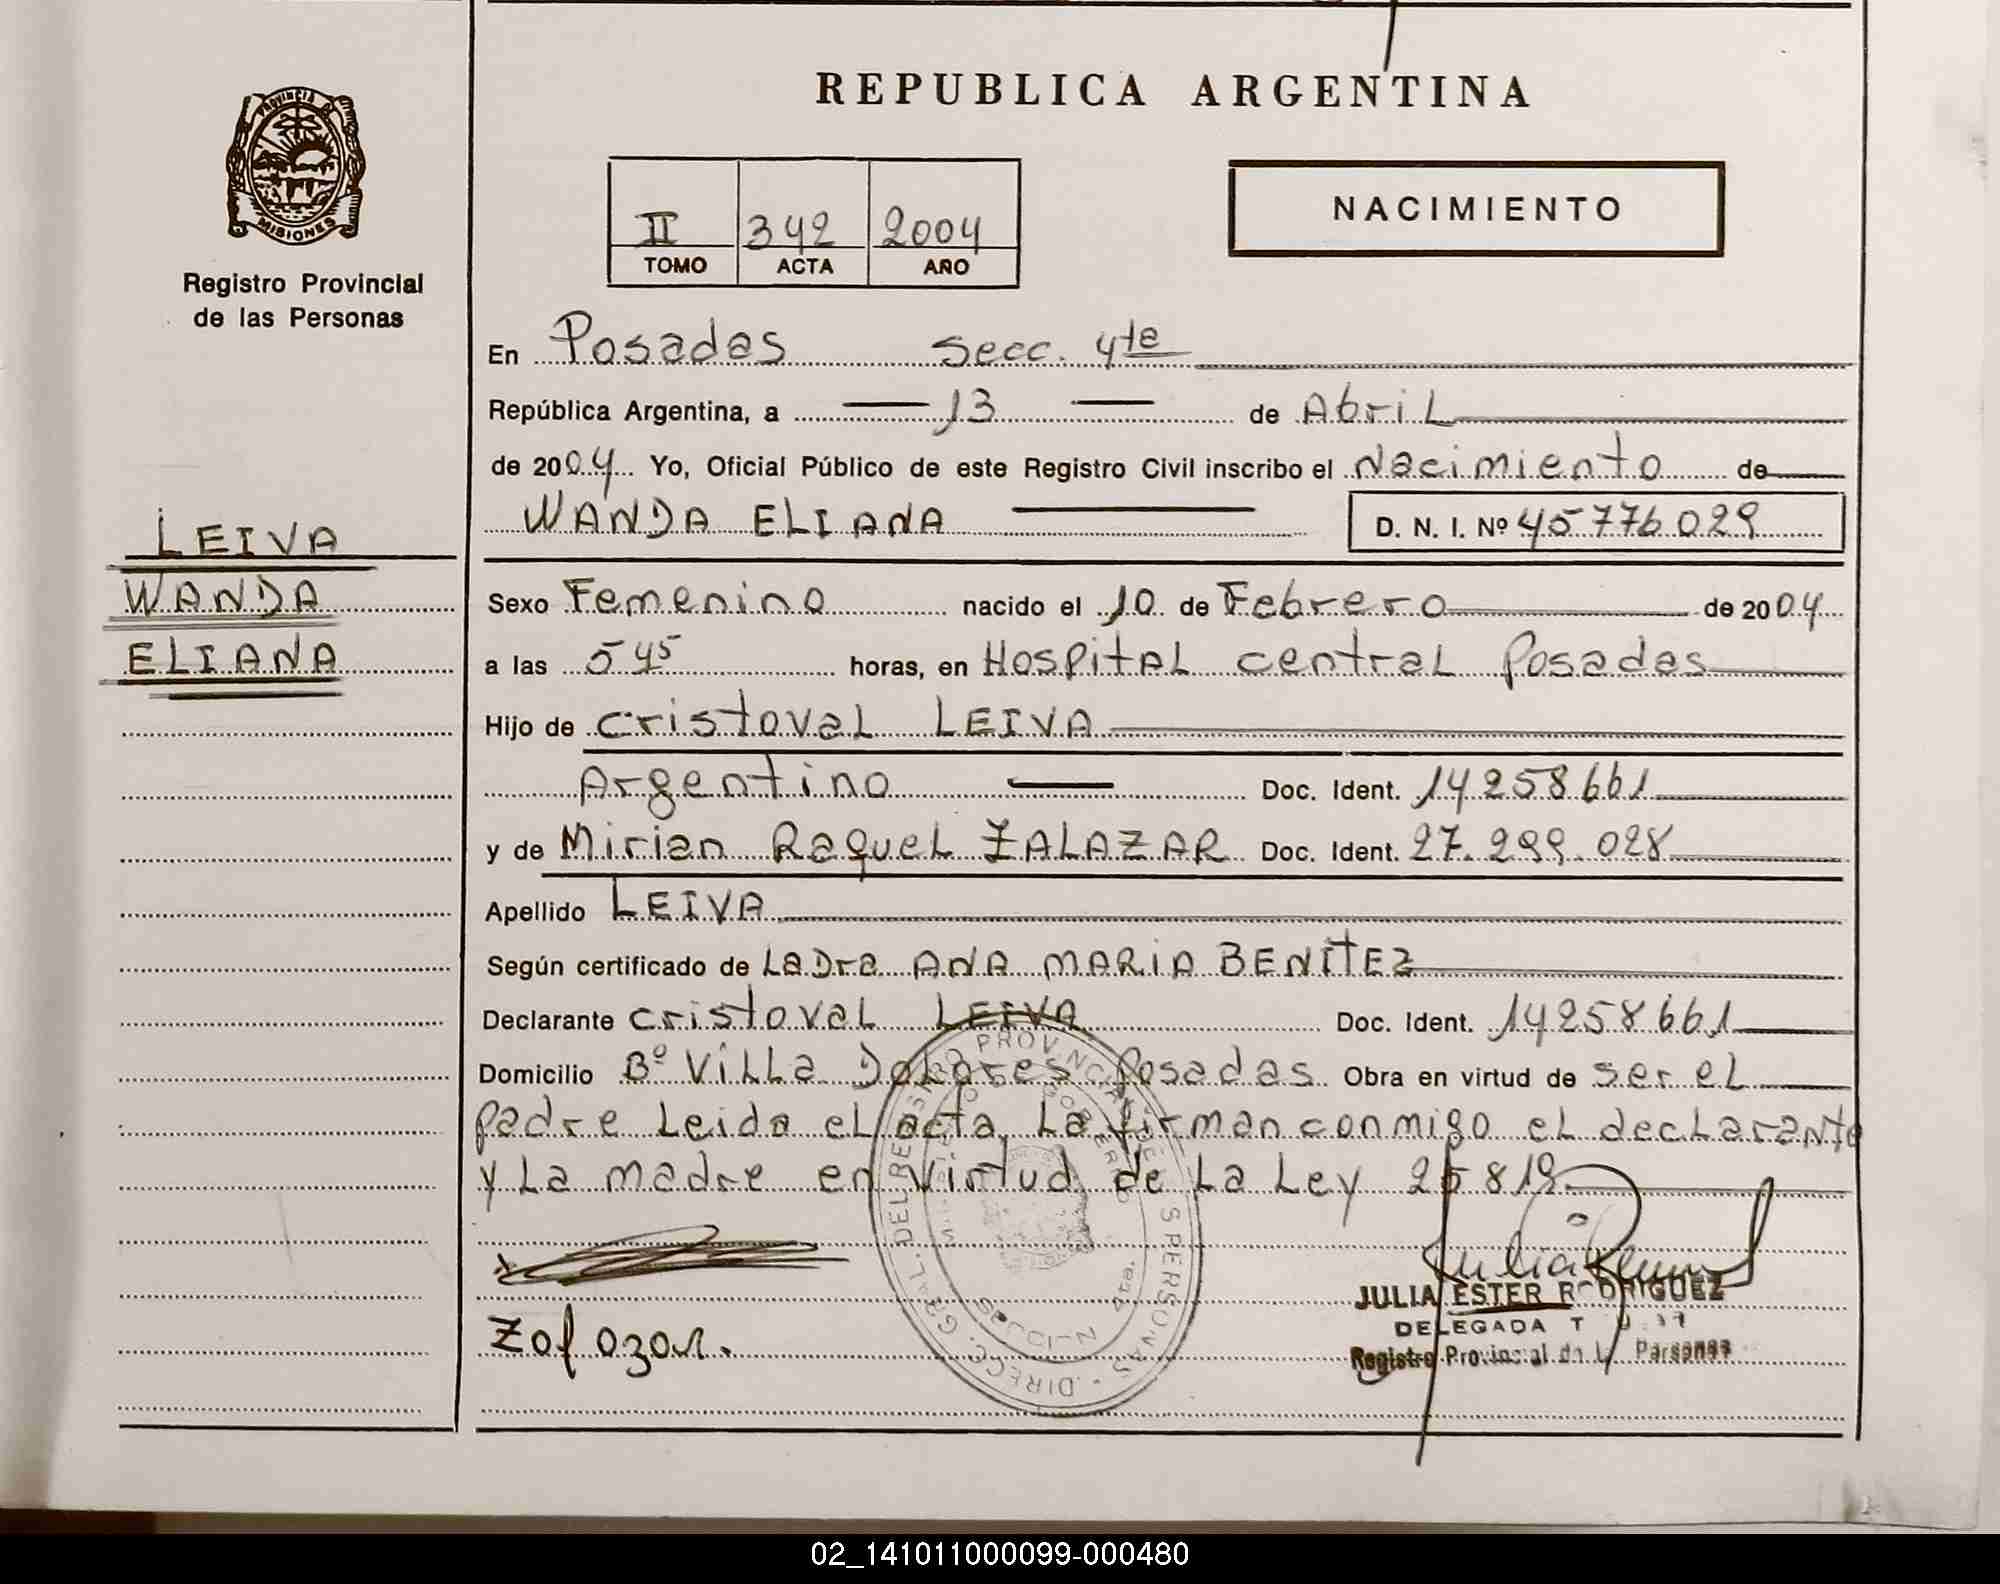 REPUBLICA ARGENTINA
PROVINCIA DE
MISIONES
Registro Provincial
de las Personas
II 342 2004
TOMO ACTA AÑO
NACIMIENTO
En Posadas secc. 4ta
República Argentina, a 13 de Abril
de 2004 Yo, Oficial Público de este Registro Civil inscribo el Nacimiento de
WANDA ELIANA D. N. I. Nº 45776029
LEIVA
WANDA
ELIANA
Sexo Femenino nacido el 10 de Febrero de 2004
a las 5 45 horas, en Hospital central Posadas
Hijo de cristoval LEIVA
Argentino Doc. Ident. 14258661
y de Mirian Raquel ZALAZAR Doc. Ident. 27.299.028
Apellido LEIVA
Según certificado de La Dra ANA MARIA BENITEZ
Declarante cristoval LEIVA Doc. Ident. 14258661
Domicilio Bº Villa Dolores Posadas Obra en virtud de ser el
padre Leida el acta La firman conmigo el declarante
y La madre en virtud de La Ley 25819
Zalazar.
JULIA ESTER RODRIGUEZ
DELEGADA
Registro Provincial de las Personas
DIREC. GRAL. DEL REGISTRO PROVINCIAL DE LAS PERSONAS
02_141011000099-000480